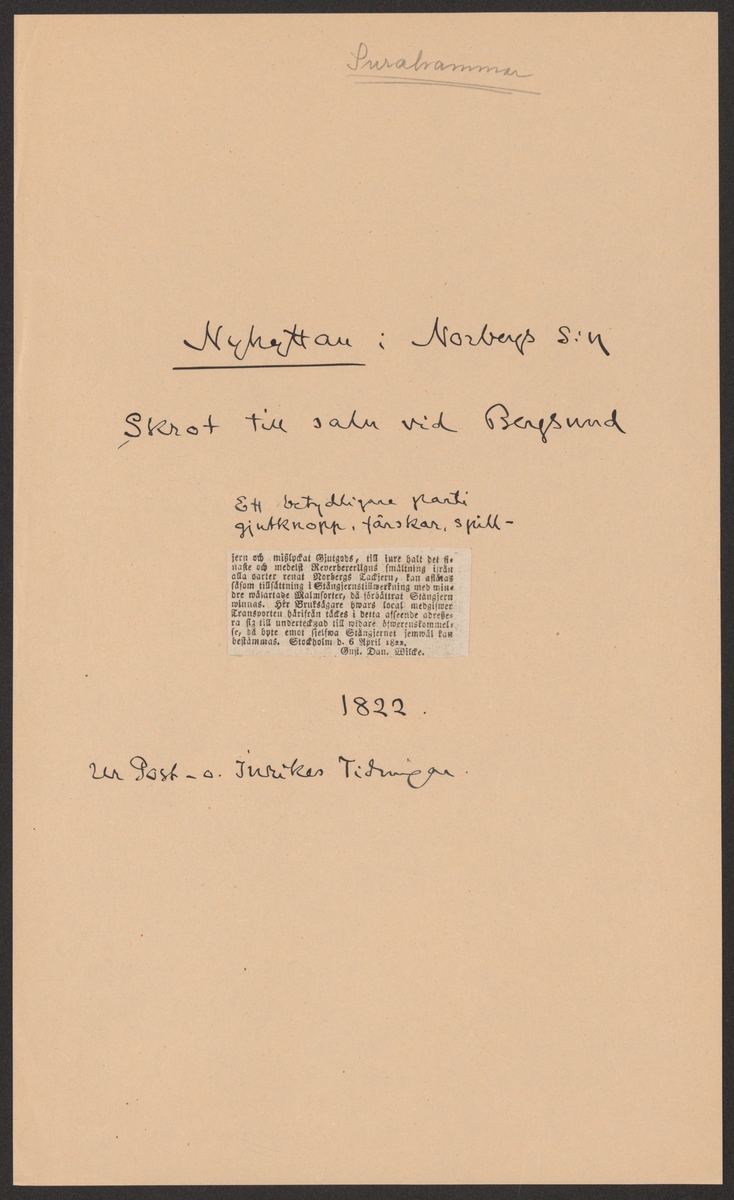 Surahammar
Nyhyttan i Norbergs s:n
Skrot till salu vid Bergsund
Ett betydligare parti
gjutknopp, färskar, spill-
jern och mißlyckat Gjutgods, till sure halt det fi-
naste och medelst Reverberer Ugns smältning ifrån
alla varter renat Norbergs Tackjern, kan aflåtas
såsom tillsättning i Stångjernstillwerkning med min-
dre wälartade Malmsorter, då förbättrat Stångjern
winnas. Hrr Bruksägare hwars local medgifwer
Transporten härifrån täckes i detta afseende adresse-
ra sig till undertecknad till widare öfwerenskommel-
se, då byte emot sielfwa Stångjernet jemwäl kan
bestämmas. Stockholm d. 6 April 1822.
Gust. Dan. Wilcke.
1822.
Ur Post- o. Inrikes Tidningar.